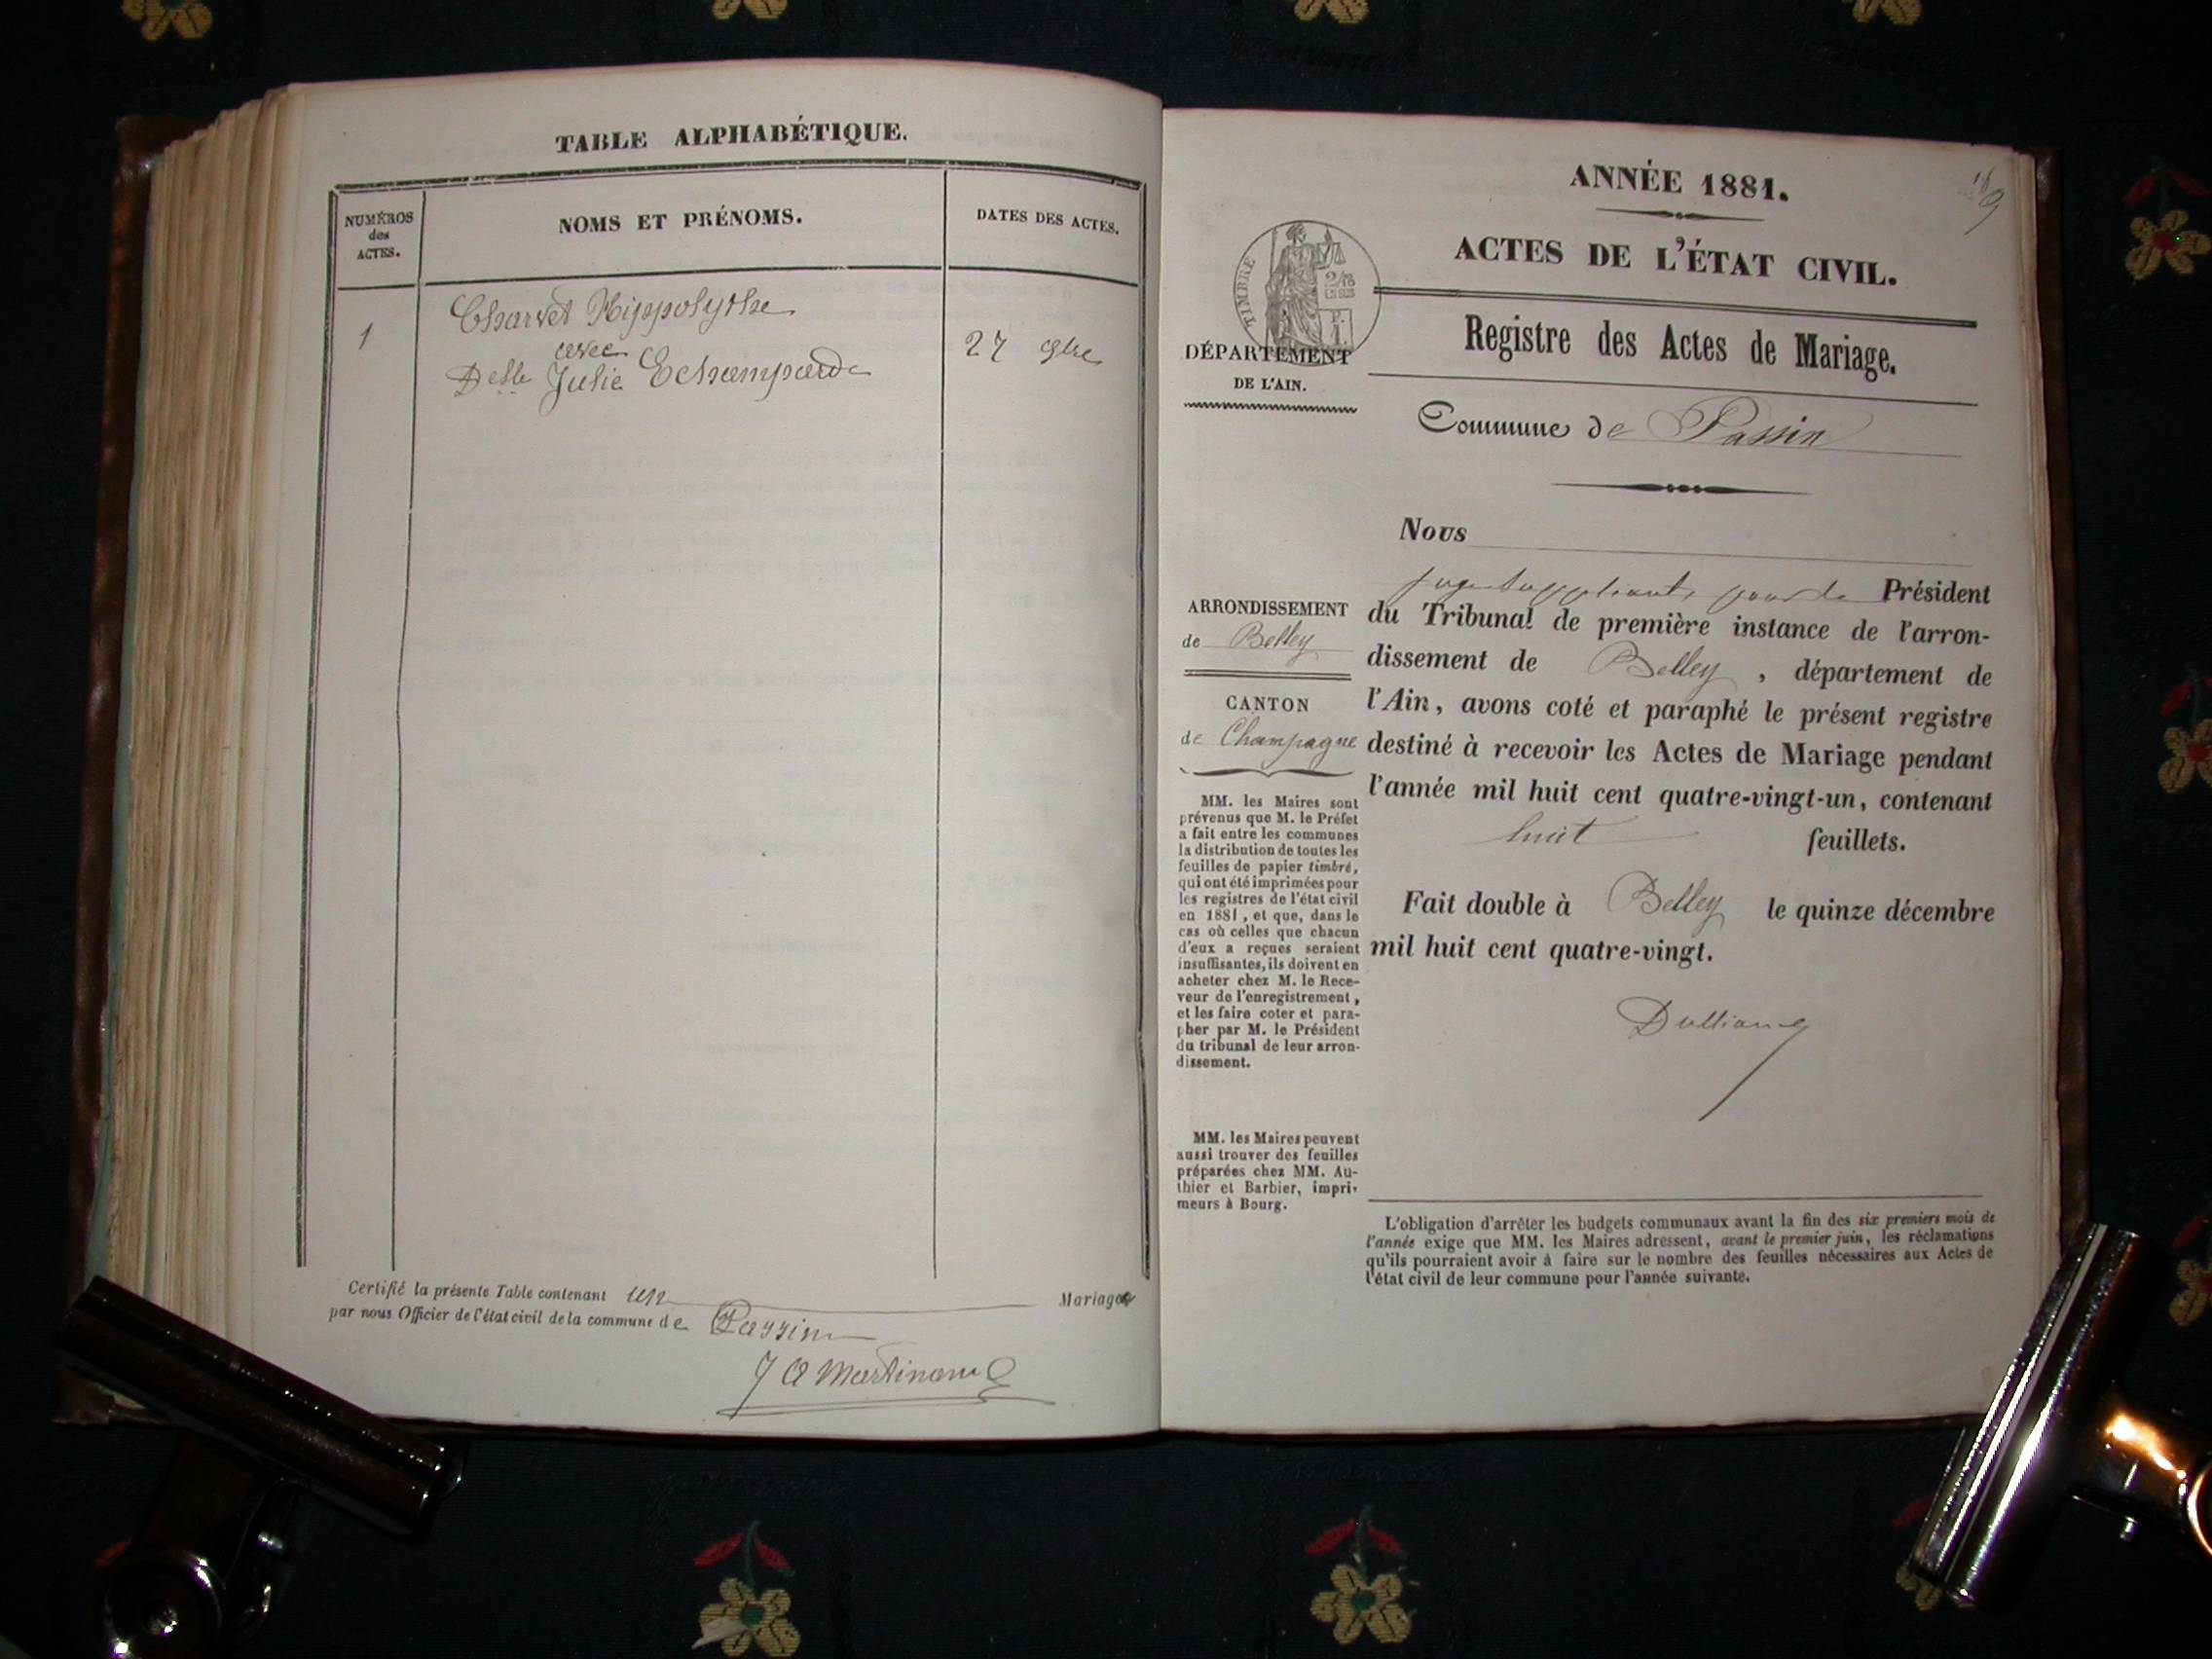 TABLE ALPHABÉTIQUE.
NUMÉROS
des
ACTES.
NOMS ET PRÉNOMS.
DATES DES ACTES.
1
Charvet Hippolythe
avec
Delle Julie Echampard
27 9bre
Certifié la présente Table contenant un Mariage
par nous Officier de l'état civil de la commune de Passin
J A Martinand
ANNÉE 1881.
ACTES DE L'ÉTAT CIVIL.
TIMBRE
Registre des Actes de Mariage.
DÉPARTEMENT
DE L'AIN.
Commune de Passin
Nous
juge suppléant, pour le Président
du Tribunal de première instance de l'arron-
dissement de Belley, département de
l'Ain, avons coté et paraphé le présent registre
destiné à recevoir les Actes de Mariage pendant
l'année mil huit cent quatre-vingt-un, contenant
huit feuillets.
Fait double à Belley le quinze décembre
mil huit cent quatre-vingt.
ARRONDISSEMENT
de Belley
CANTON
de Champagne
MM. les Maires sont
prévenus que M. le Préfet
a fait entre les communes
la distribution de toutes les
feuilles de papier timbré,
qui ont été imprimées pour
les registres de l'état civil
en 1881, et que, dans le
cas où celles que chacun
d'eux a reçues seraient
insuffisantes, ils doivent en
acheter chez M. le Rece-
veur de l'enregistrement,
et les faire coter et para-
pher par M. le Président
du tribunal de leur arron-
dissement.
MM. les Maires peuvent
aussi trouver des feuilles
préparées chez MM. Au-
thier et Barbier, impri-
meurs à Bourg.
L'obligation d'arrêter les budgets communaux avant la fin des six premiers mois de
l'année exige que MM. les Maires adressent, avant le premier juin, les réclamations
qu'ils pourraient avoir à faire sur le nombre des feuilles nécessaires aux Actes de
l'état civil de leur commune pour l'année suivante.